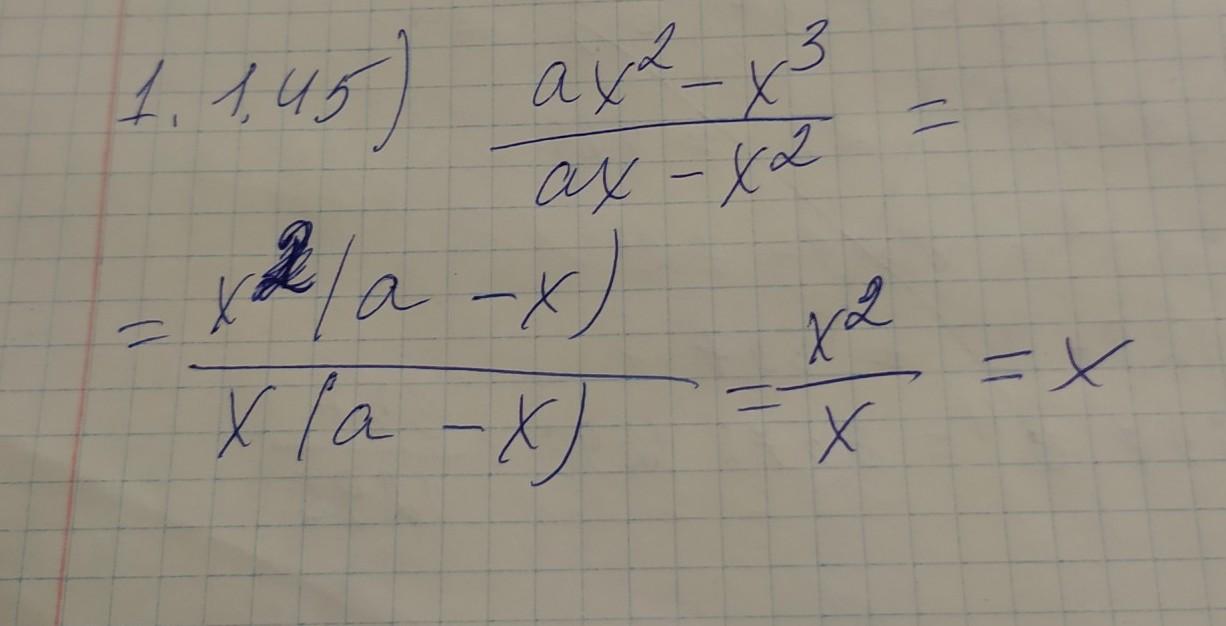 1. 1.45) (ax² - x³)/(ax - x²) =
= x²(a - x)/x(a - x) = x²/x = x